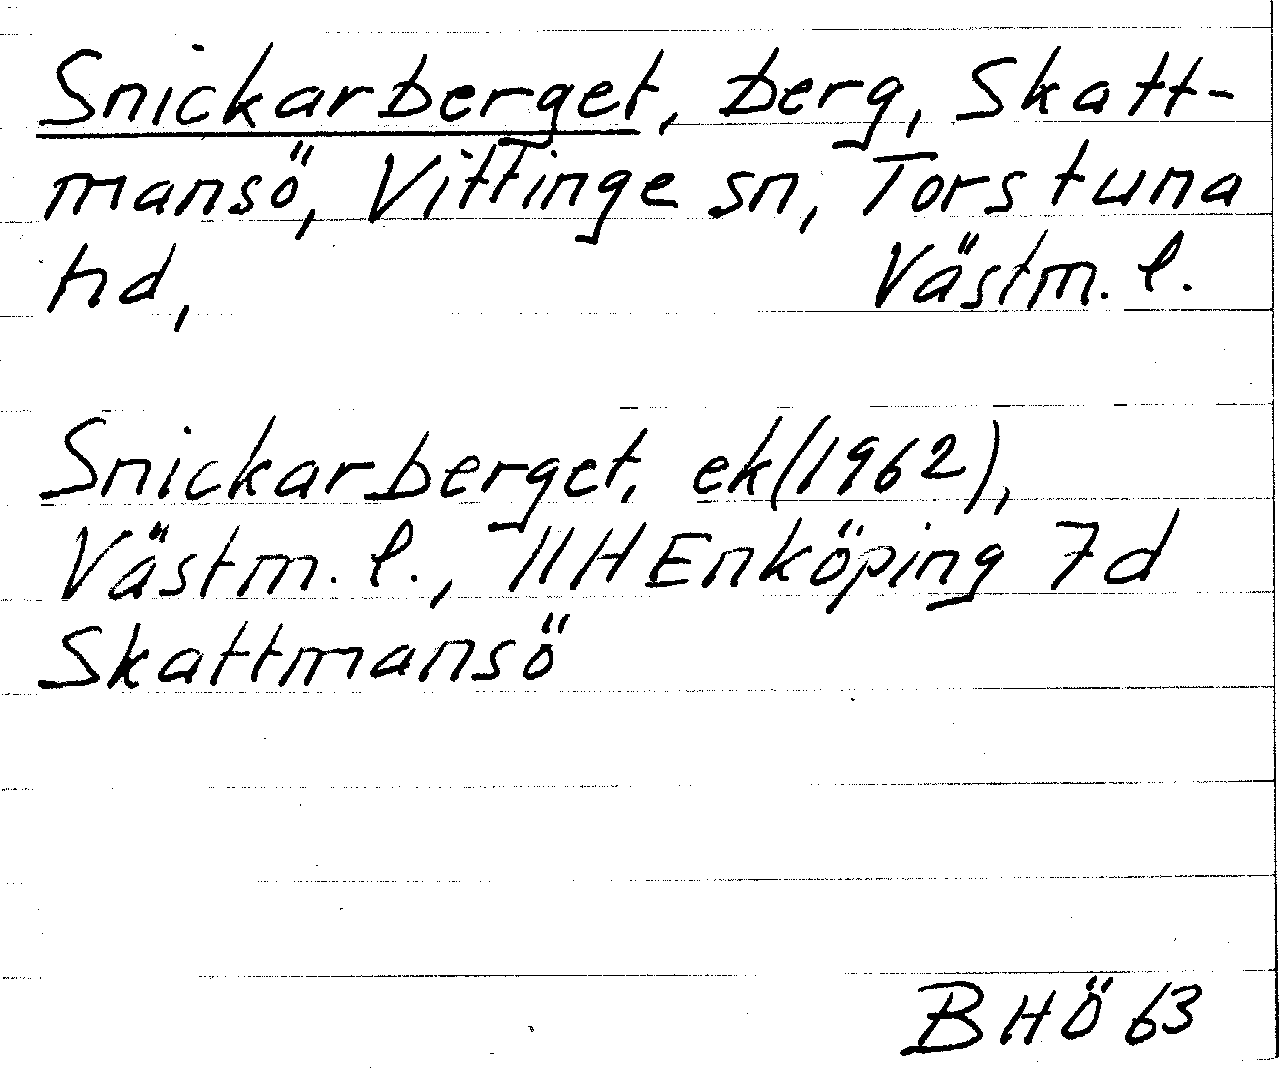 Snickarberget, berg, Skatt-
mansö, Vittinge sn, Torstuna
hd, Västm. l.
Snickarberget, ek(1962),
Västm. l., 11H Enköping 7d
Skattmansö
BHÖ 63